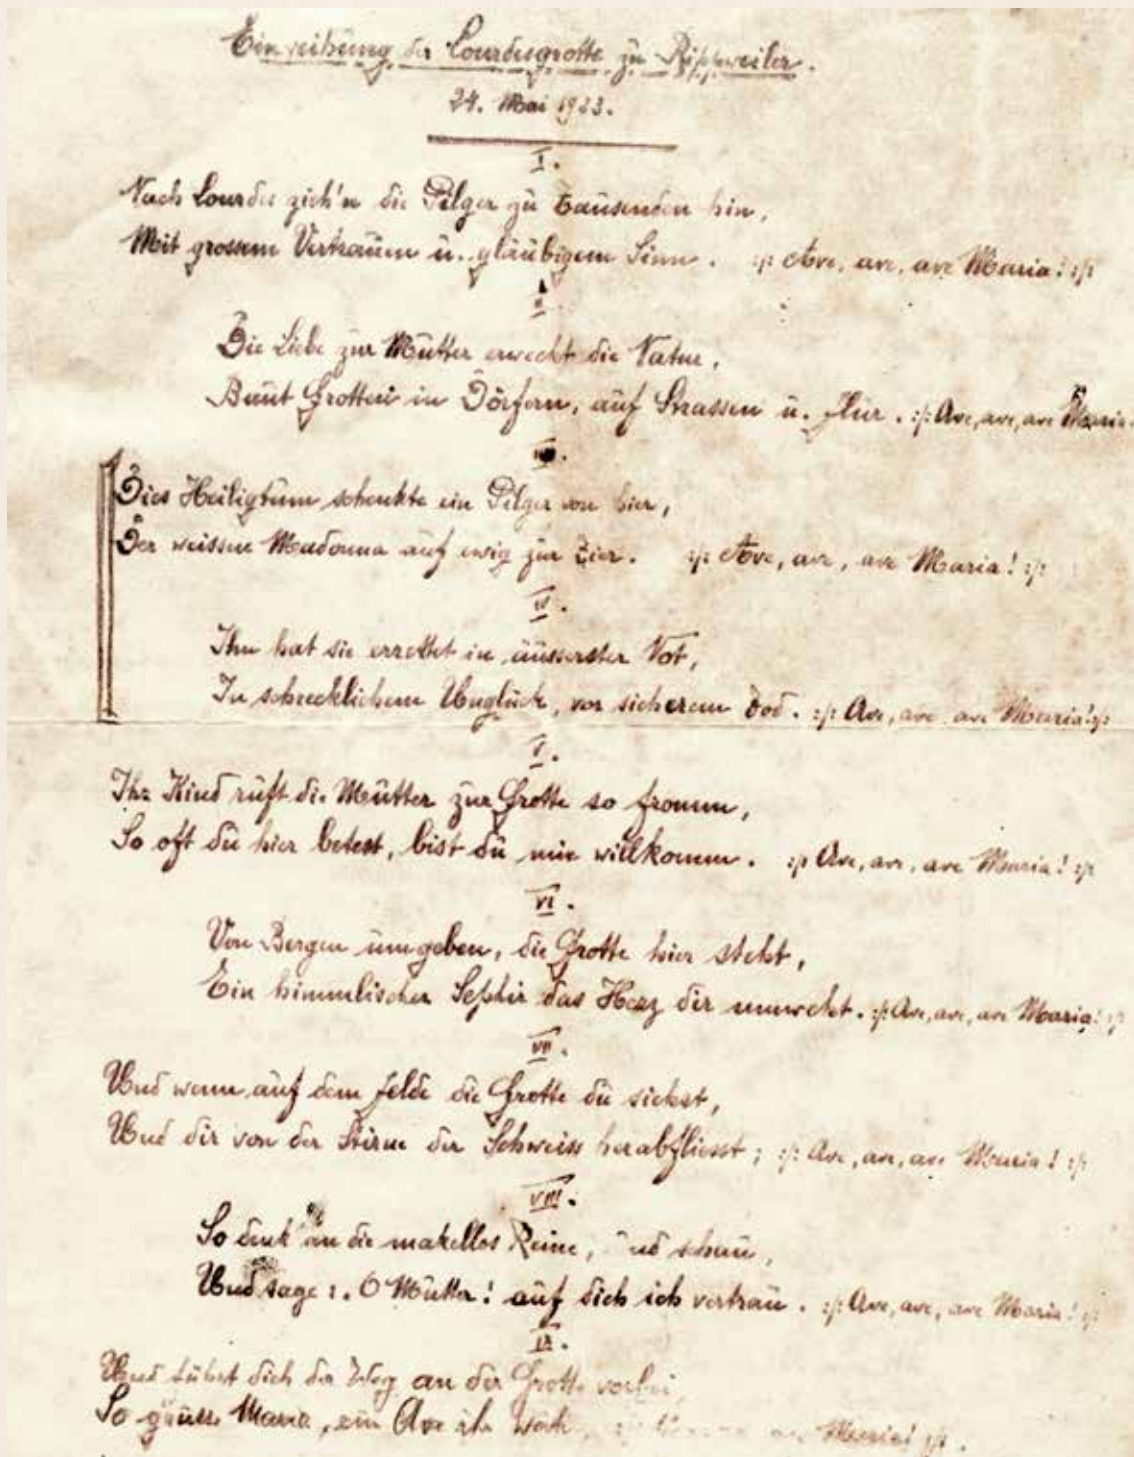 Einweihung der Lourdesgrotte zu Rippweiler.
24. Mai 1923.
I.
Nach Lourdes zieh'n die Pilger zu Tausenden hin,
Mit grossem Vertrauen u. gläubigem Sinn. :/: Ave, ave, ave Maria! :/:
II.
Die Liebe zur Mutter erweckt die Natur,
Baut Grotten in Dörfern, auf Strassen u. Flur. :/: Ave, ave, ave Maria
III.
Dies Heiligtum schenkte ein Pilger von hier,
Der weissen Madonna auf ewig zur Zier. :/: Ave, ave, ave Maria! :/:
IV.
Ihn hat sie errettet in äusserster Not,
In schrecklichem Unglück, vor sicherem Tod. :/: Ave, ave ave Maria! :/:
V.
Ihr Kind ruft die Mutter zur Grotte so fromm,
So oft du hier betest, bist du mir willkomm. :/: Ave, ave, ave Maria! :/:
VI.
Von Bergen umgeben, die Grotte hier steht,
Ein himmlischer Sephir das Herz dir umweht. :/: Ave, ave, ave Maria! :/:
VII.
Und wenn auf dem Felde die Grotte du siehst,
Und dir von der Stirne der Schweiss herabfliesst; :/: Ave, ave, ave Maria! :/:
VIII.
So denk an die makellos Reine, und schau,
Und sage: O Mutter! auf dich ich vertrau. :/: Ave, ave, ave Maria! :/:
IX.
Und führt dich der Weg an der Grotte vorbei,
So grüsse Maria, ein Ave ihr Maria! :/:.